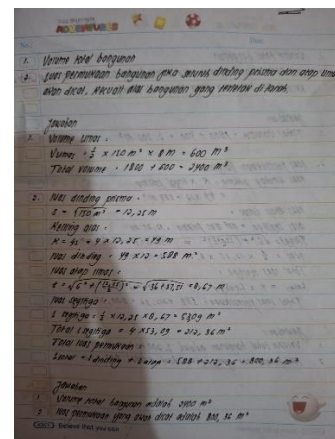 ADVENTURES
No.:
Date:
1. Volume total bangunan
2. Luas permukaan bangunan jika seluruh dinding prisma dan atap limas
akan dicat, kecuali alas bangunan yang terletak di tanah.
Jawaban
1. Volume Limas :
Vlimas = 1/3 × 150 m² × 8 m = 600 m³
Total volume = 1800 + 600 = 2400 m³
2. Luas dinding prisma :
s = √150 m² = 12,25 m
Keliling alas :
K = 4s = 4 × 12,25 = 49 m
Luas dinding = 49 × 12 = 588 m²
Luas atap limas :
Luas segitiga :
L segitiga = 1/2 × 12,25 × 8,67 = 53,09 m²
Total segitiga = 4 × 53,09 = 212,36 m²
Total luas permukaan =
Ltotal = Ldinding + Latap = 588 + 212,36 = 800,36 m²
Jawaban
1. Volume total bangunan adalah 2400 m³
2. Luas permukaan yang akan dicat adalah 800,36 m²
Believe that you can